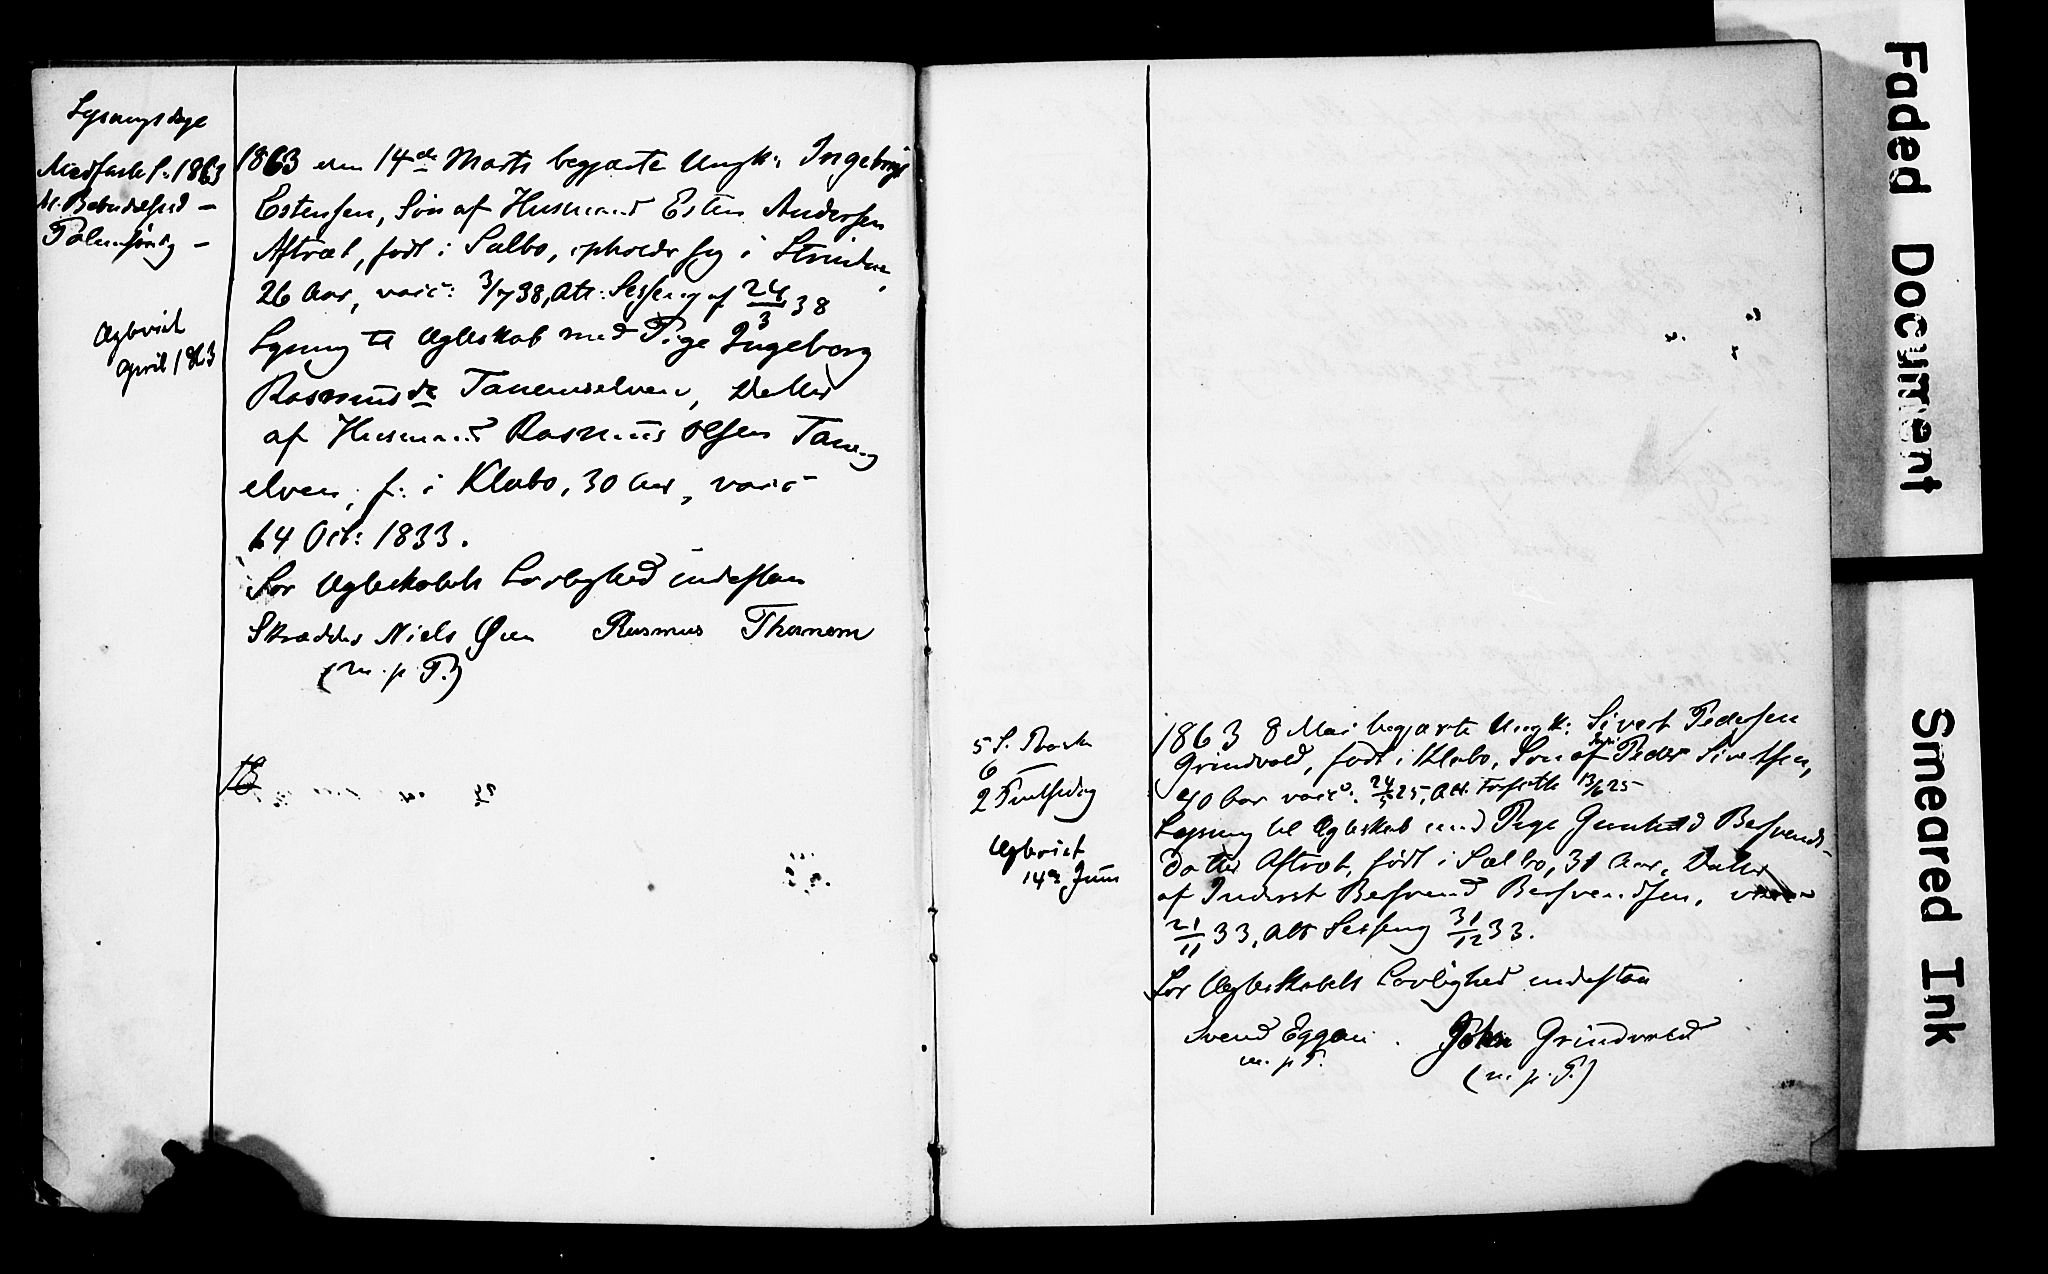 Lysningsdage
Midfaste S. 1863
M. Bebudelsesd –
Palmesøndg –
Ægteviet
April 1863
1863 den 14de Marts begjærte Ungk: Ingebrigt
Estensen, Søn af Husmand Esten Andersen
Aftræt, født i Sælbo, opholdr sig i Strinden,
26 Aar, vacc: 3/7 38, Att: Sesseng af 24/3 38
Lysning til Ægteskab med Pige Ingeborg
Rasmusdr Tanemselven, Datter
af Husmand Rasmus Olsen Tanem
elven, f: i Klæbo, 30 Aar, vacc
14 Oct: 1833.
For Ægteskabets Lovlighed indestaa
Skrædder Niels Øien Rasmus Thanem
(m. p. P.)
18
5 S. P Paaske
6 —
2 Pintsedag
Ægteviet
14de Juni
1863 8 Mai begjærte Ungk: Sivert Pedersen
Grindvold, født i Klæbo, Søn af Peder Sivertsen,
40 Aar vacc: 24/5 25, Att. Forseth 13/6 25
Lysning til Ægteskab med Pige Gunhild Besvends-
datter Aftræt, født i Sælbo, 31 Aar, Datter
af Inderst Besvend Besvendsen,
21/11 33, Att Sesseng 31/12 33.
For Ægteskabets Lovlighed indestaa
Svend Eggen . John Grindvold
m. p. P.
(m. p. P.)
Faded Document
Smeared Ink